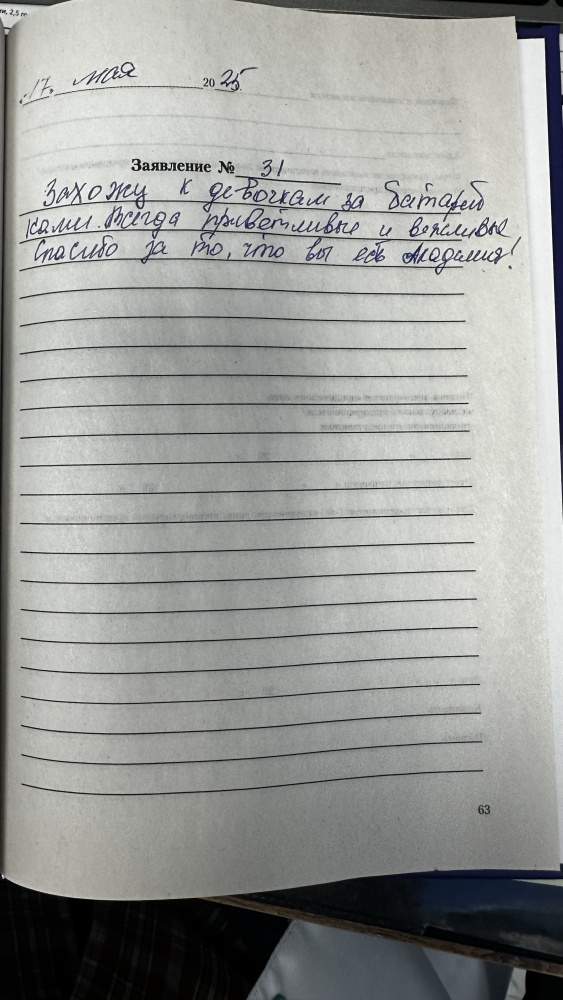 17. мая 2025.
Заявление № 31
Захожу к девочкам за батарей
ками. Всегда приветливые и вежливые
Спасибо за то, что вы есть Академия!
63